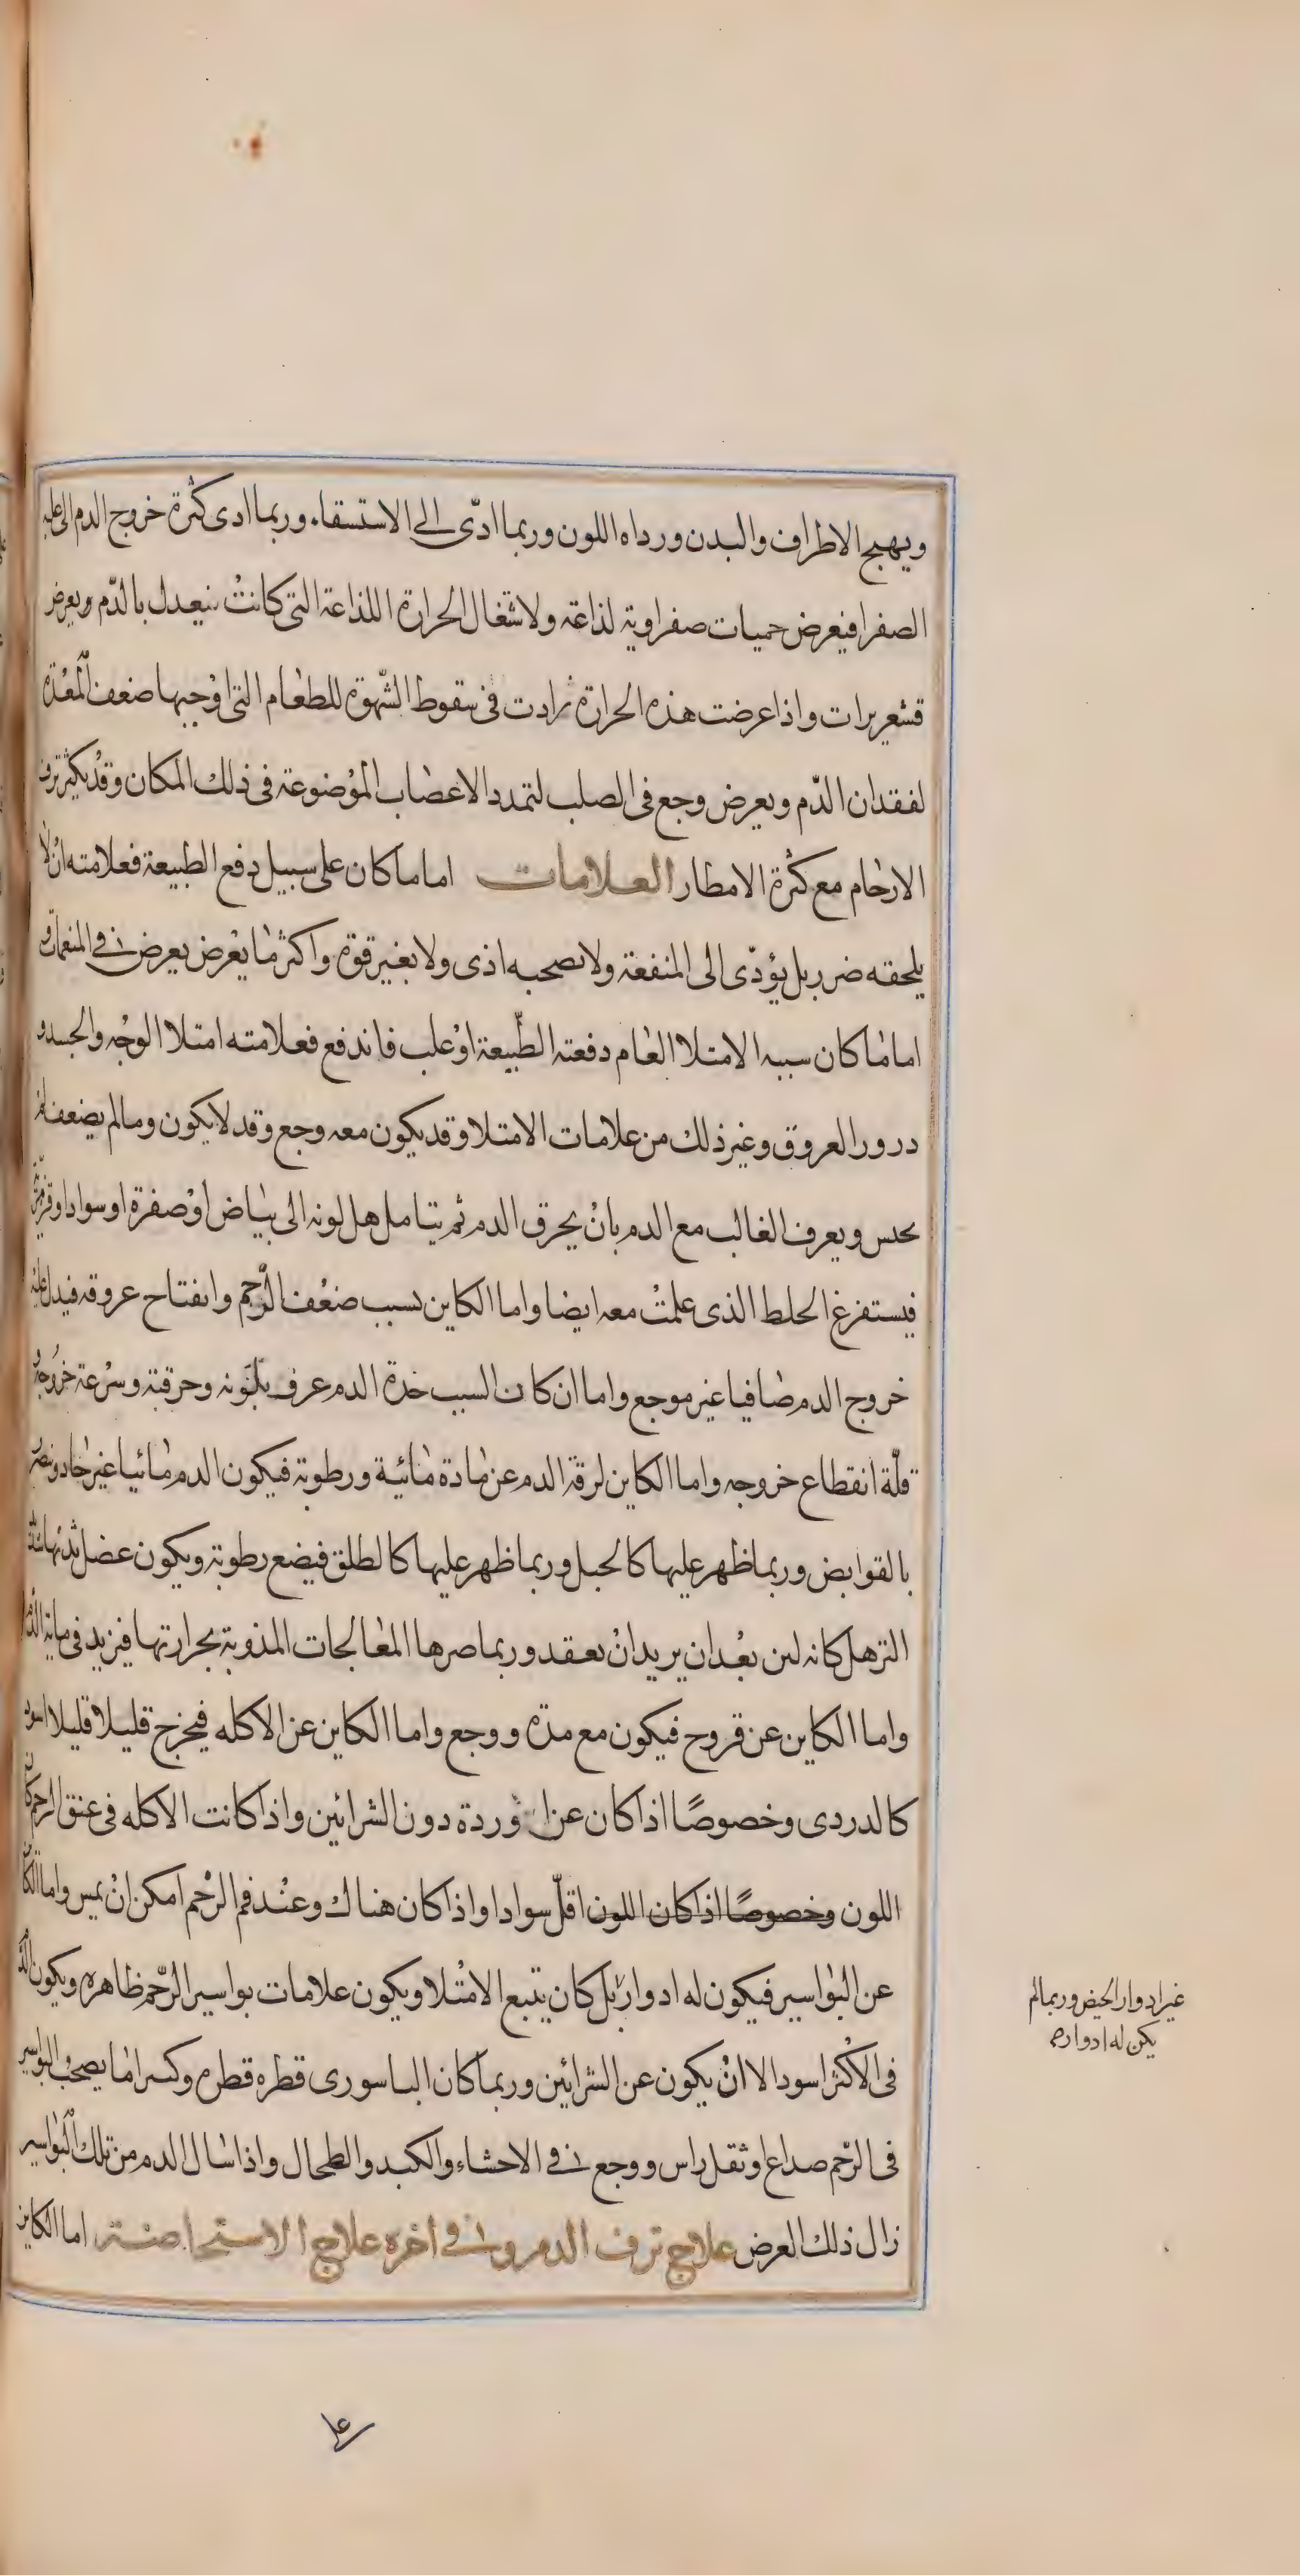 ويهيج الاطراف والبدن ورداه اللون وربما ادّى الى الاستسقاء وربما ادى كثرة خروج الدم الى غلبه
الصفرا فيعرض حميات صفراوية لذاعة ولاشتغال الحرارة اللذاعة التى كانت يتعدل بالدّم ويعرض
قشعريرات واذا عرضت هذه الحرارة زادت فى سقوط الشّهوة للطعام التى اوجبها ضعف المعدة
لفقدان الدّم ويعرض وجع فى الصلب لتمدد الاعصاب الموضوعة فى ذلك المكان وقد يكثر نزف
الارحام مع كثرة الامطار العلامات اما ما كان على سبيل دفع الطبيعة فعلامته ان لا
يلحقه ضرر بل يؤدّى الى المنفعة ولا يصحبه اذى ولا بغير قوة واكثر ما يعرض يعرض فى المنعمات و
اما ما كان سببه الامتلا العام دفعته الطّبيعة او غلب فاندفع فعلامته امتلا الوجه والجسد و
درور العروق وغير ذلك من علامات الامتلا وقد يكون معه وجع وقد لا يكون وما لم يضعف لم
يحبس ويعرف الغالب مع الدم بان يحرق الدم ثم يتامل هل لونه الى بياض او صفرة او سواد او قرمزية
فيستفرغ الخلط الذى علمت معه ايضا واما الكاين بسبب ضعف الرّحم وانفتاح عروقه فيدل عليه
خروج الدم صافيا غير موجع واما ان كان السبب حدة الدم عرف بلونه وحرقته وسرعة خروجه و
قلّة انقطاع خروجه واما الكاين لرقة الدم عن مادة مائية ورطوبة فيكون الدم مائيا غير حاد ويضر
بالقوابض وربما ظهر عليها كالحبل وربما ظهر عليها كالطلق فيضع رطوبة ويكون عضل ثديها شديد
الترهل كانه لبن بعد ان يريد ان يعقد وربما ضرها المعالجات المذوبة بحرارتها فيزيد فى مائية الدّم
واما الكاين عن قروح فيكون مع مدّه ووجع واما الكاين عن الاكله فيخرج قليلا قليلا اسود
كالدردى وخصوصًا اذا كان عن الاوردة دون الشرائين واذا كانت الاكله فى عنق الرحم كان
اللون وخصوصًا اذا كان اللون اقلّ سوادا واذا كان هناك وعند فم الرّحم امكن ان يمس واما الكاين
عن البواسير فيكون له ادوار بل كان يتبع الامتلا ويكون علامات بواسير الرّحم ظاهره ويكون الدم
فى الاكثر اسود الا ان يكون عن الشرائين وربما كان الباسورى قطره قطره وكثيرا ما يصحب البواسير
فى الرّحم صداع وثقل راس ووجع فى الاحشاء والكبد والطحال واذا سال الدم من تلك البواسير
زال ذلك العرض علاج نزف الدم وفى اخره علاج الاستحاضة اما الكاين
غير ادوار الحيض وربما لم
يكن له ادوار